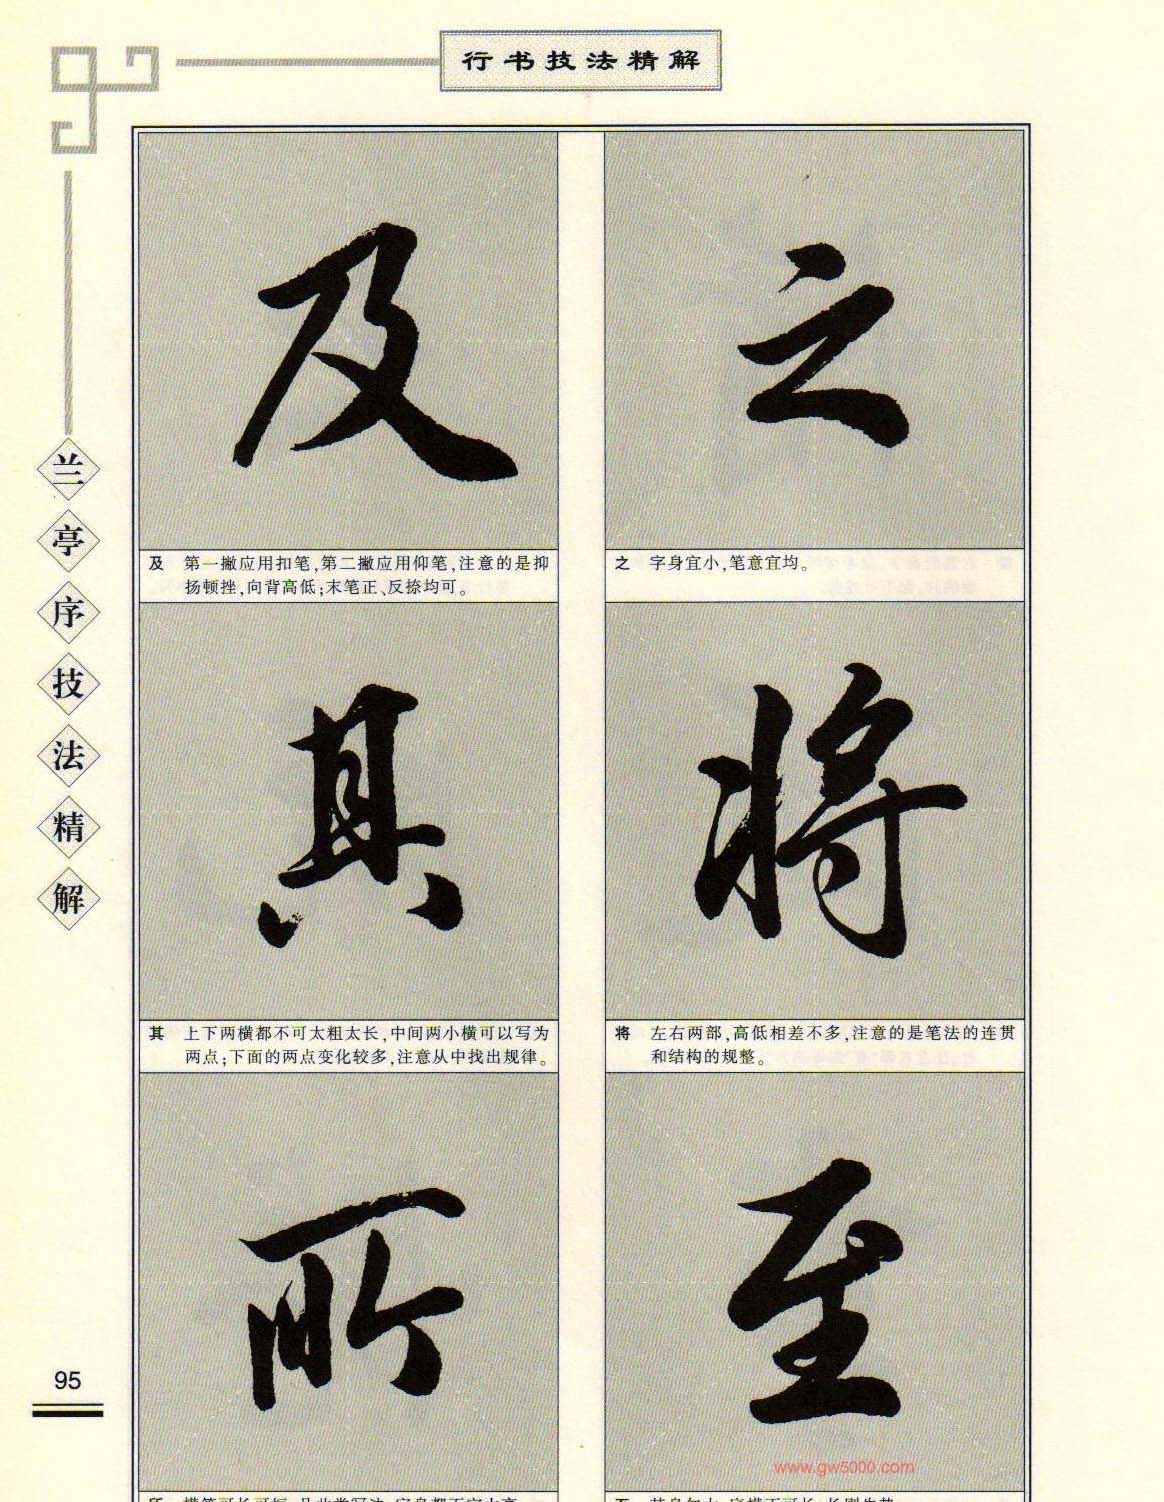 行书技法精解
兰亭序技法精解
及
之
及 第一撇应用扣笔,第二撇应用仰笔,注意的是抑
扬顿挫,向背高低;末笔正、反捺均可。
之 字身宜小,笔意宜均。
其
将
其 上下两横都不可太粗太长,中间两小横可以写为
两点;下面的两点变化较多,注意从中找出规律。
将 左右两部,高低相差不多,注意的是笔法的连贯
和结构的规整。
所
至
95
www.gw5000.com